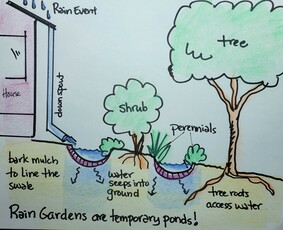 Rain Event
tree
House
down spout
Shrub
Perennials
bark mulch
to line the
swale
water
seeps into
ground
tree roots
access water
Rain Gardens are temporary ponds!